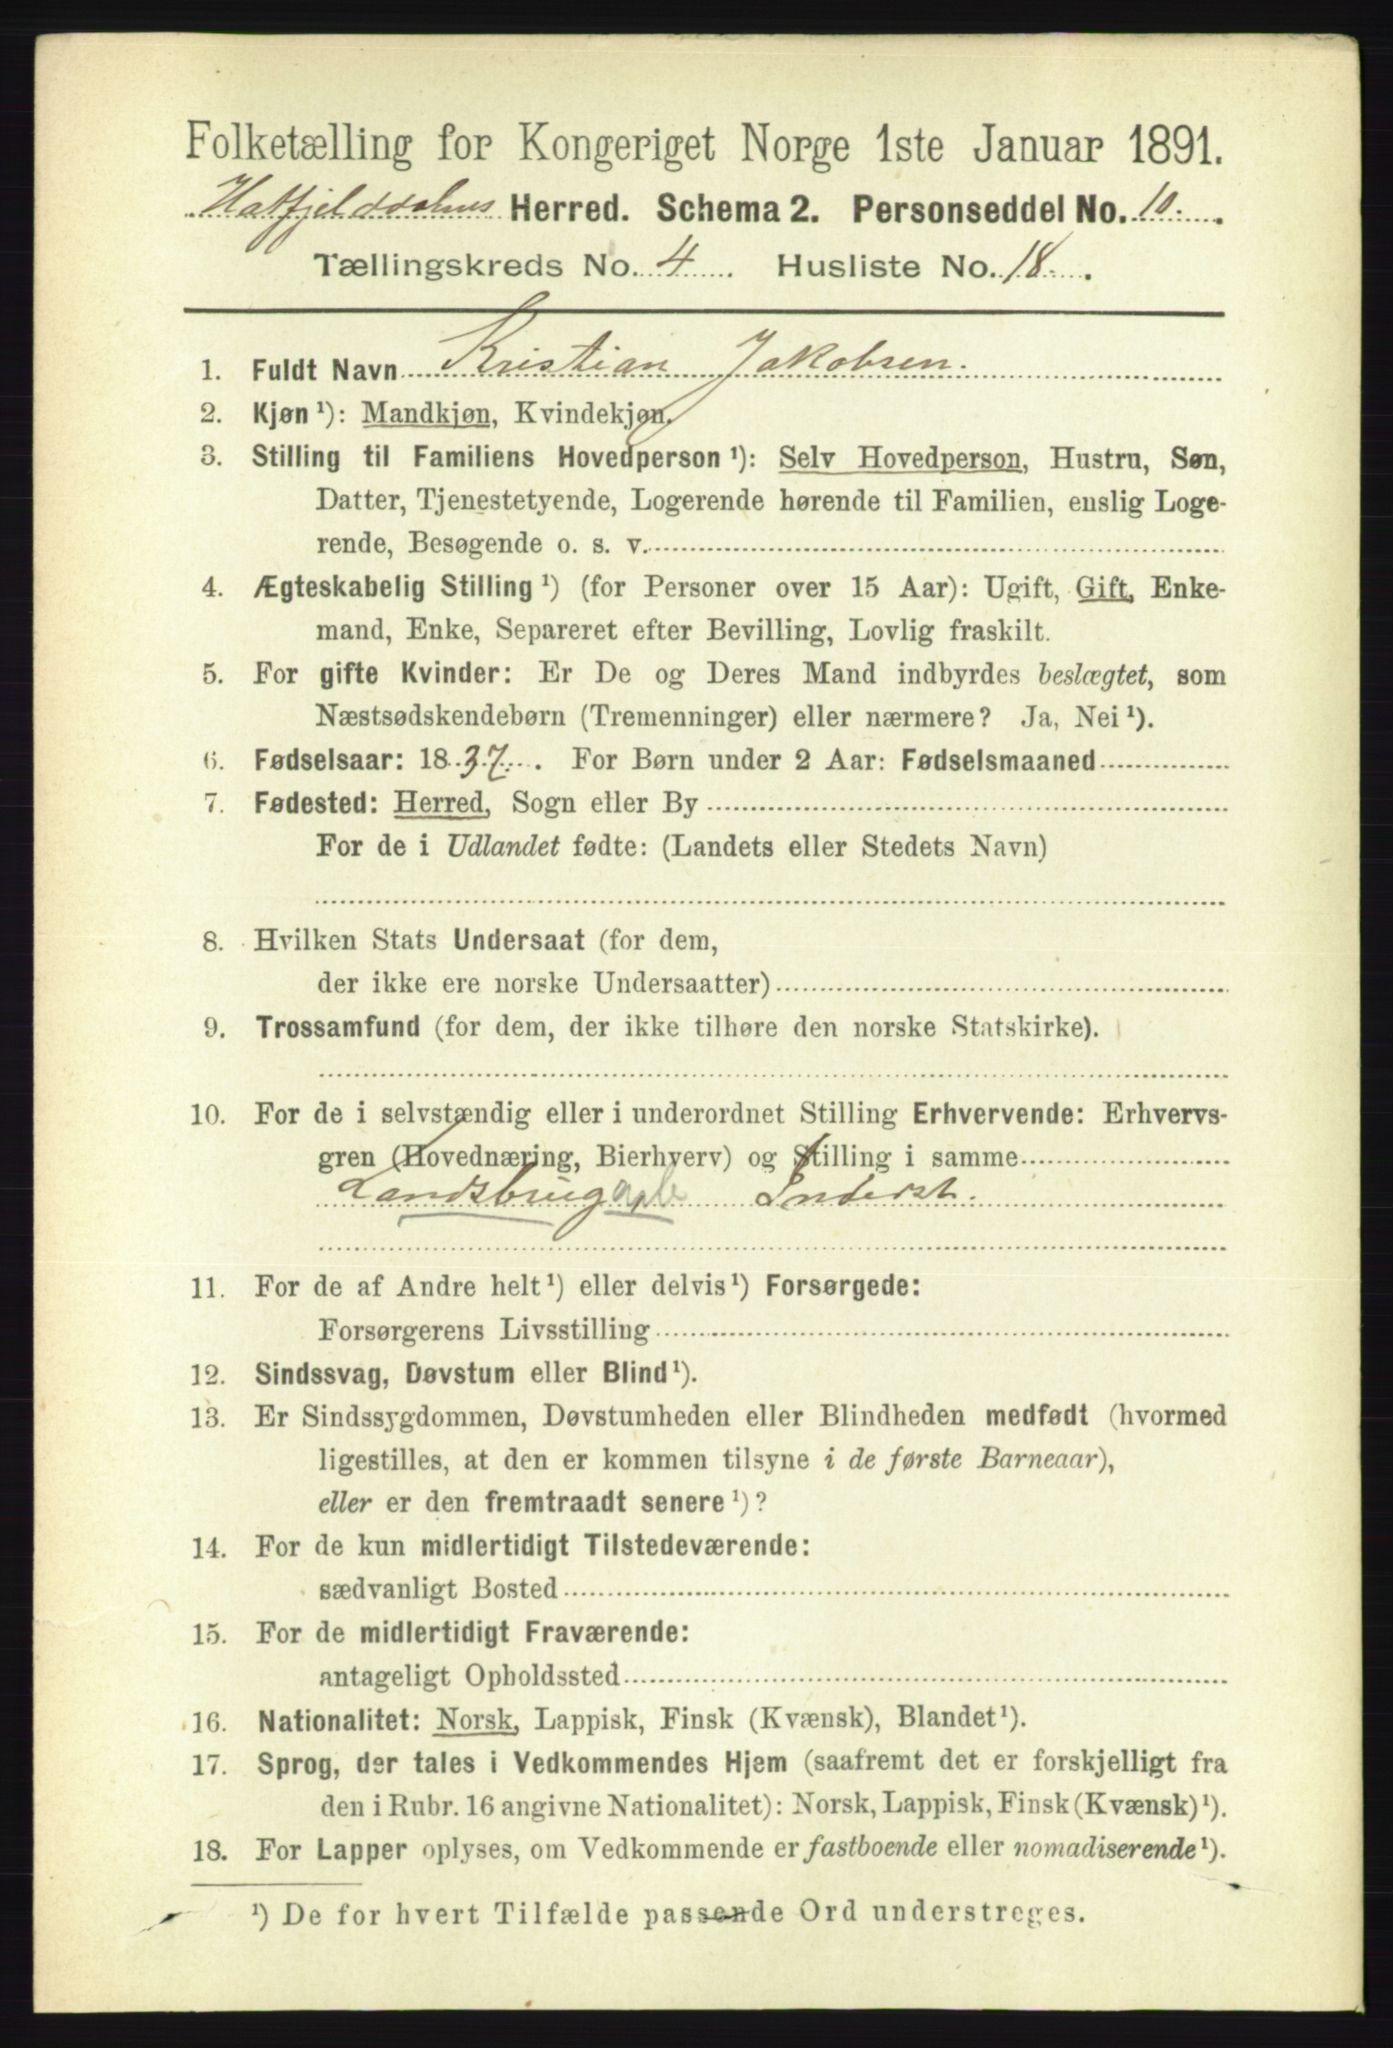 Folketælling for Kongeriget Norge 1ste Januar 1891.
Hatfjelddalens Herred. Schema 2. Personseddel No. 10.
Tællingskreds No. 4. Husliste No. 18.
1. Fuldt Navn Kristian Jakobsen.
2. Kjøn ¹): Mandkjøn, Kvindekjøn.
3. Stilling til Familiens Hovedperson ¹): Selv Hovedperson, Hustru, Søn,
Datter, Tjenestetyende, Logerende hørende til Familien, enslig Loge-
rende, Besøgende o. s. v.
4. Ægteskabelig Stilling ¹) (for Personer over 15 Aar): Ugift, Gift, Enke-
mand, Enke, Separeret efter Bevilling, Lovlig fraskilt.
5. For gifte Kvinder: Er De og Deres Mand indbyrdes beslægtet, som
Næstsødskendebørn (Tremenninger) eller nærmere? Ja, Nei ¹).
6. Fødselsaar: 1837. For Børn under 2 Aar: Fødselsmaaned
7. Fødested: Herred, Sogn eller By
For de i Udlandet fødte: (Landets eller Stedets Navn)
8. Hvilken Stats Undersaat (for dem,
der ikke ere norske Undersaatter)
9. Trossamfund (for dem, der ikke tilhøre den norske Statskirke).
10. For de i selvstændig eller i underordnet Stilling Erhvervende: Erhvervs-
gren (Hovednæring, Bierhverv) og Stilling i samme
Landsbrug Inderst.
11. For de af Andre helt ¹) eller delvis ¹) Forsørgede:
Forsørgerens Livsstilling
12. Sindssvag, Døvstum eller Blind ¹).
13. Er Sindssygdommen, Døvstumheden eller Blindheden medfødt (hvormed
ligestilles, at den er kommen tilsyne i de første Barneaar),
eller er den fremtraadt senere ¹)?
14. For de kun midlertidigt Tilstedeværende:
sædvanligt Bosted
15. For de midlertidigt Fraværende:
antageligt Opholdssted
16. Nationalitet: Norsk, Lappisk, Finsk (Kvænsk), Blandet ¹).
17. Sprog, der tales i Vedkommendes Hjem (saafremt det er forskjelligt fra
den i Rubr. 16 angivne Nationalitet): Norsk, Lappisk, Finsk (Kvænsk) ¹).
18. For Lapper oplyses, om Vedkommende er fastboende eller nomadiserende ¹).
¹) De for hvert Tilfælde passende Ord understreges.